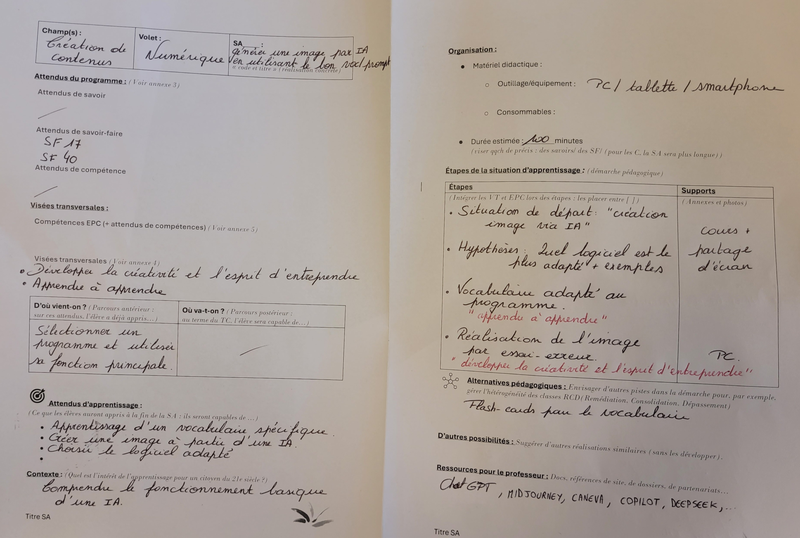 Champ(s) :
Création de
contenus
Volet :
Numérique
SA :
générer une image par IA
en utilisant le bon voc/prompt
Attendus du programme : (Voir annexe 3)
Attendus de savoir
Attendus de savoir-faire
SF 17
SF 40
Attendus de compétence
Visées transversales :
Compétences EPC (+ attendus de compétences) (Voir annexe 5)
Visées transversales (Voir annexe 4)
• Développer la créativité et l'esprit d'entreprendre
• Apprendre à apprendre
D'où vient-on ? (Parcours antérieur :
sur ces attendus, l'élève a déjà appris...)
Sélectionner un
programme et utiliser
sa fonction principale.
Où va-t-on ? (Parcours postérieur :
au terme du TC, l'élève sera capable de...)
Attendus d'apprentissage :
(Ce que les élèves auront appris à la fin de la SA : ils seront capables de ...)
• Apprentissage d'un vocabulaire spécifique.
• Créer une image à partir d'une IA
• Choisir le logiciel adapté
•
Contexte : (Quel est l'intérêt de l'apprentissage pour un citoyen du 21e siècle ?)
Comprendre le fonctionnement basique
d'une IA.
Titre SA
Organisation :
• Matériel didactique :
o Outillage/équipement : PC / tablette / smartphone
o Consommables :
• Durée estimée : 100 minutes
(viser qqch de précis : des savoirs/ des SF) (pour les C, la SA sera plus longue)
Étapes de la situation d'apprentissage : (démarche pédagogique)
Étapes
(Intégrer les VT et EPC lors des étapes : les placer entre [ ])
Supports
(Annexes et photos)
• Situation de départ : "création
image via IA"
• Hypothèses : Quel logiciel est le
plus adapté" + exemples
cours +
partage
d'écran
• Vocabulaire adapté au
programme.
"apprendre à apprendre"
• Réalisation de l'image
par essai-erreur.
PC.
"développer la créativité et l'esprit d'entreprendre"
Alternatives pédagogiques : Envisager d'autres pistes dans la démarche pour, par exemple,
gérer l'hétérogénéité des classes RCD (Remédiation, Consolidation, Dépassement)
Flash-cards pour le vocabulaire
D'autres possibilités : Suggérer d'autres réalisations similaires (sans les développer).
Ressources pour le professeur : Docs, références de site, de dossiers, de partenariats...
Chat GPT, MIDJOURNEY, CANEVA, COPILOT, DEEPSEEK,...
Titre SA